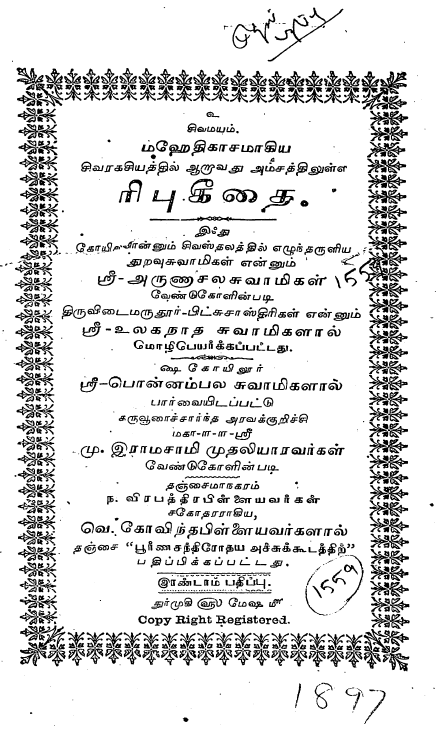 உ
சிவமயம்.
மஹேதிகாசமாகிய
சிவரகசியத்தில் ஆறாவது அம்சத்திலுள்ள
ரிபுகீதை.
இஃது
கோயிலூரென்னும் சிவஸ்தலத்தில் எழுந்தருளிய
துறவுசுவாமிகள் என்னும்
ஸ்ரீ-அருணாசலசுவாமிகள்
155
வேண்டுகோளின்படி
திருவிடைமருதூர்-பிட்சுசாஸ்திரிகள் என்னும்
ஸ்ரீ-உலகநாத சுவாமிகளால்
மொழிபெயர்க்கப்பட்டது.
ஷை கோயிலூர்
ஸ்ரீ-பொன்னம்பல சுவாமிகளால்
பார்வையிடப்பட்டு
கருவூரைச்சார்ந்த அரவக்குறிச்சி
மகா-ள-ள-ஸ்ரீ
மு. இராமசாமி முதலியாரவர்கள்
வேண்டுகோளின்படி
தஞ்சைமாநகரம்
ந. விரபத்திரபிள்ளையவர்கள்
சகோதரராகிய,
வெ. கோவிந்தபிள்ளையவர்களால்
தஞ்சை "பூர்ணசந்திரோதய அச்சுக்கூடத்திற்"
பதிப்பிக்கப்பட்டது.
இரண்டாம் பதிப்பு.
1559
துர்முகி ௵ மேஷ ௴
Copy Right Registered.
1897